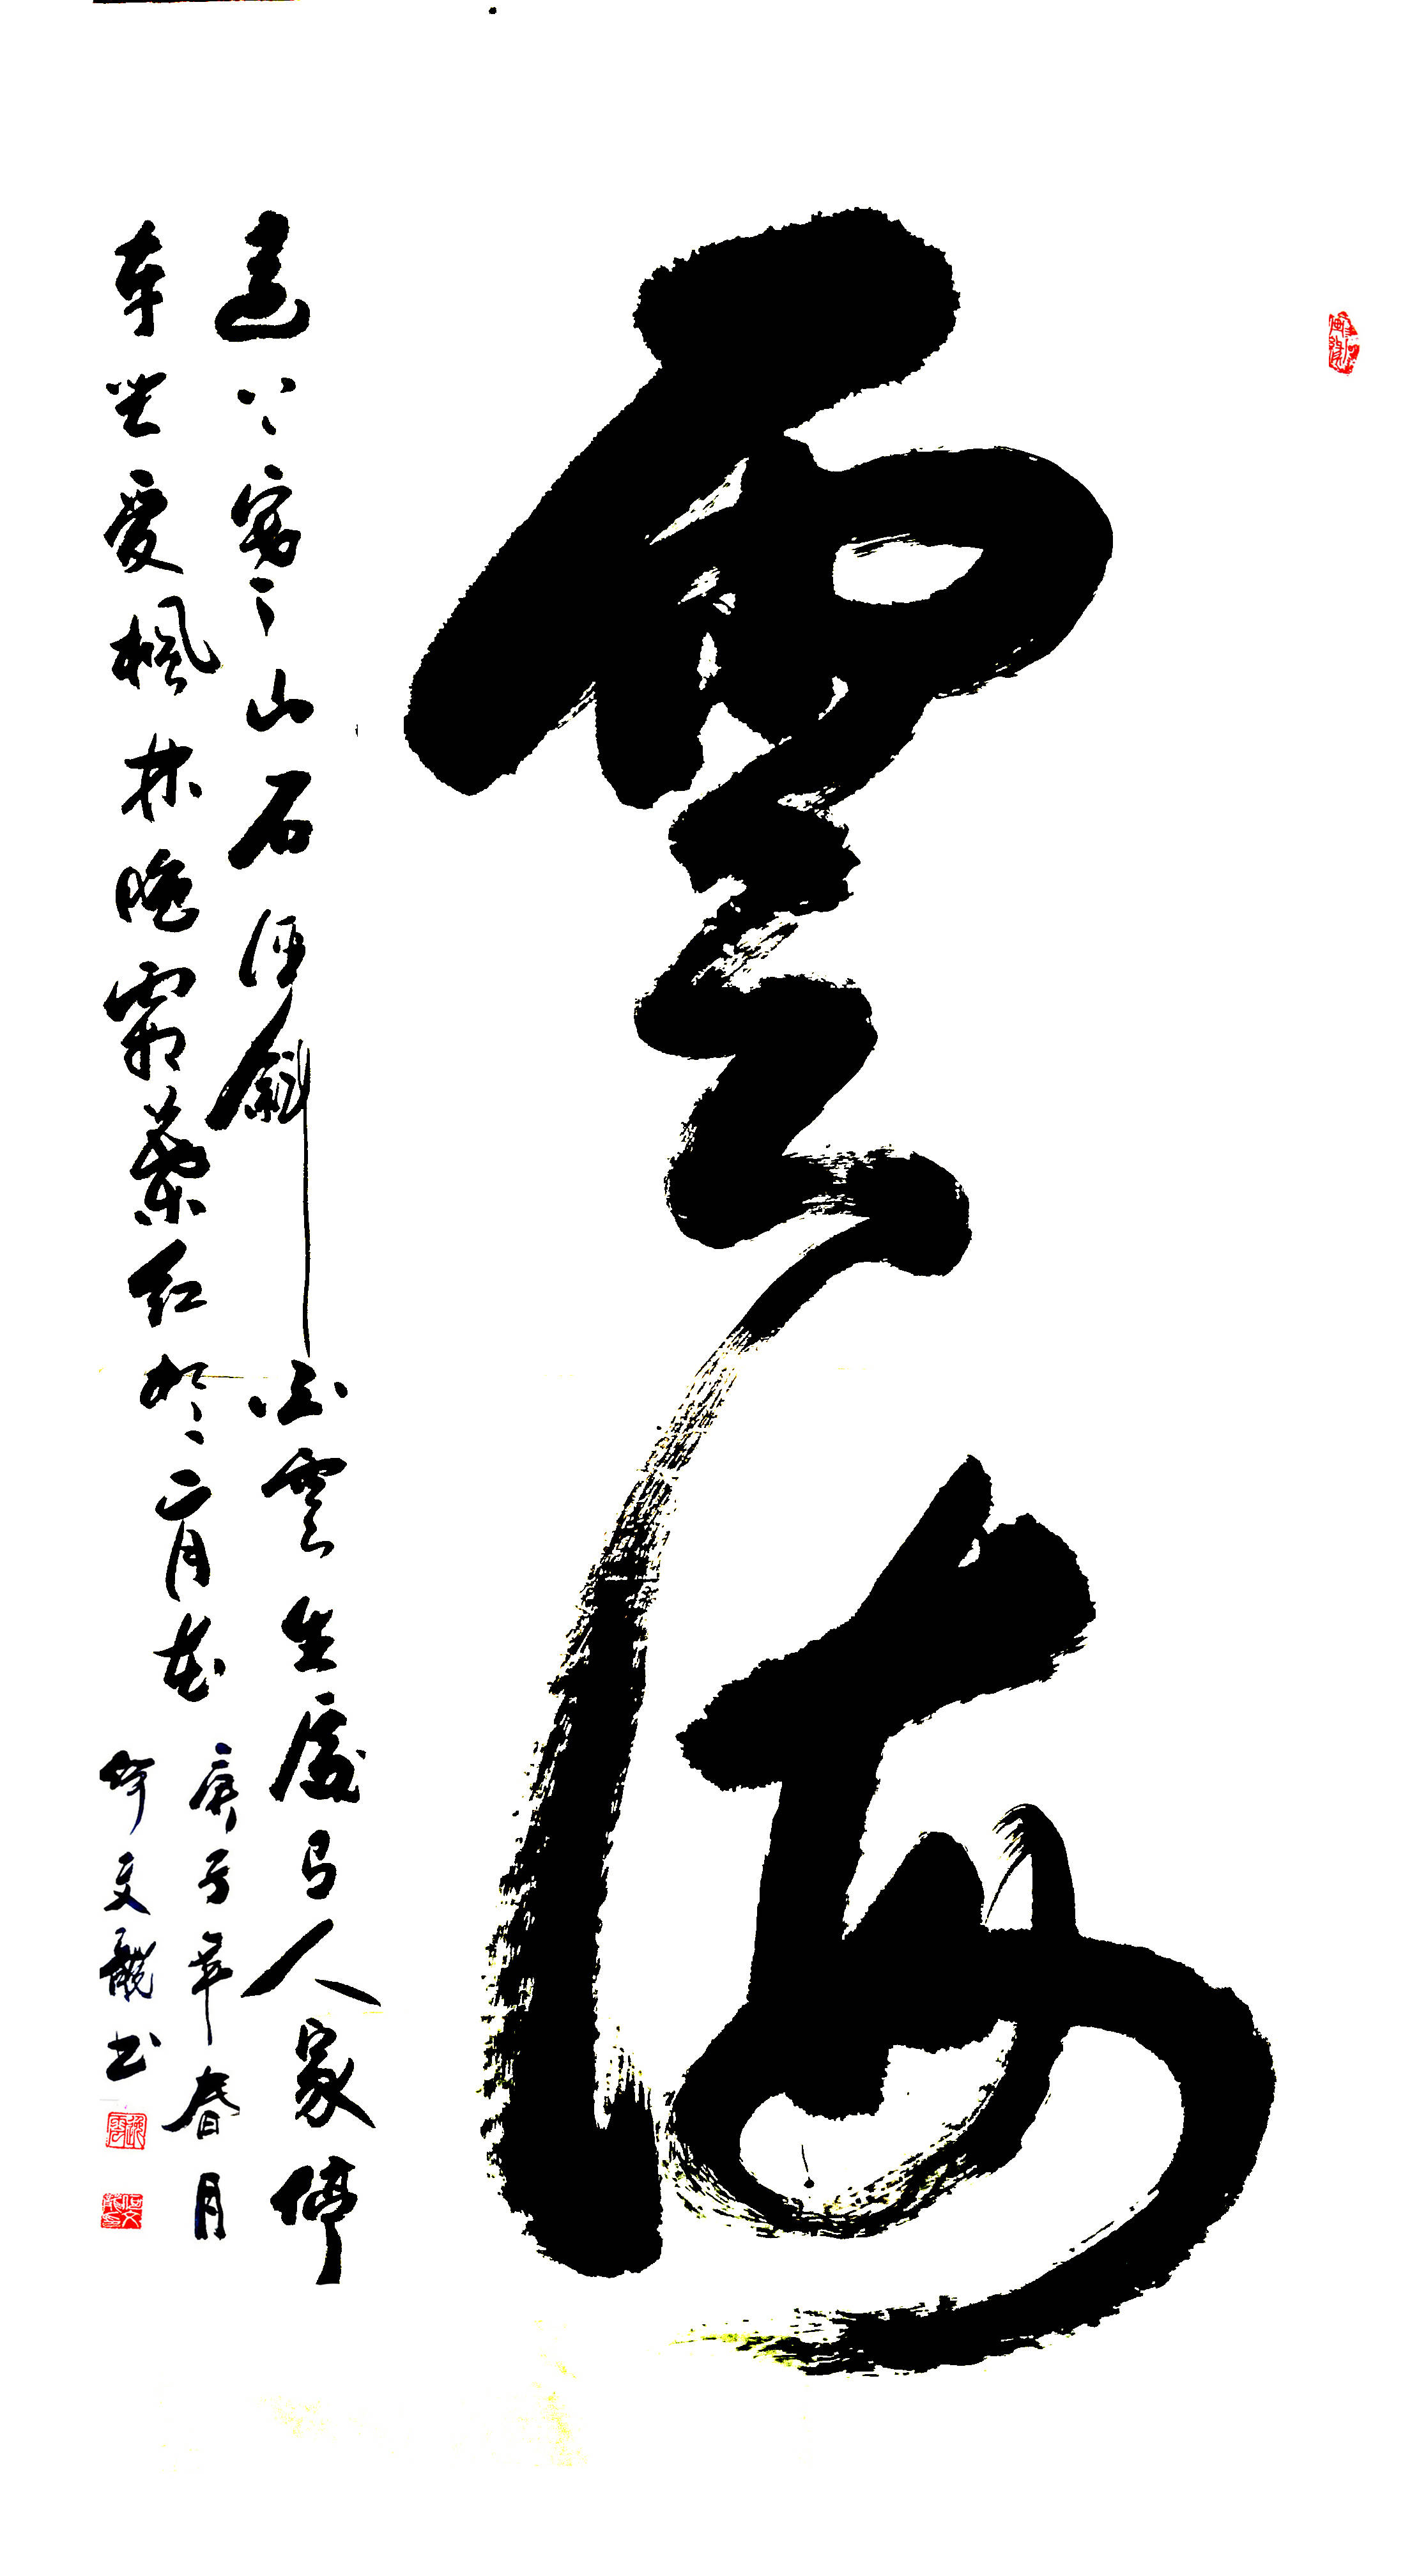 雲海
遠上寒山石徑斜白雲生處有人家停
車坐愛楓林晚霜葉紅於二月花
庚子年春月
何文龍书